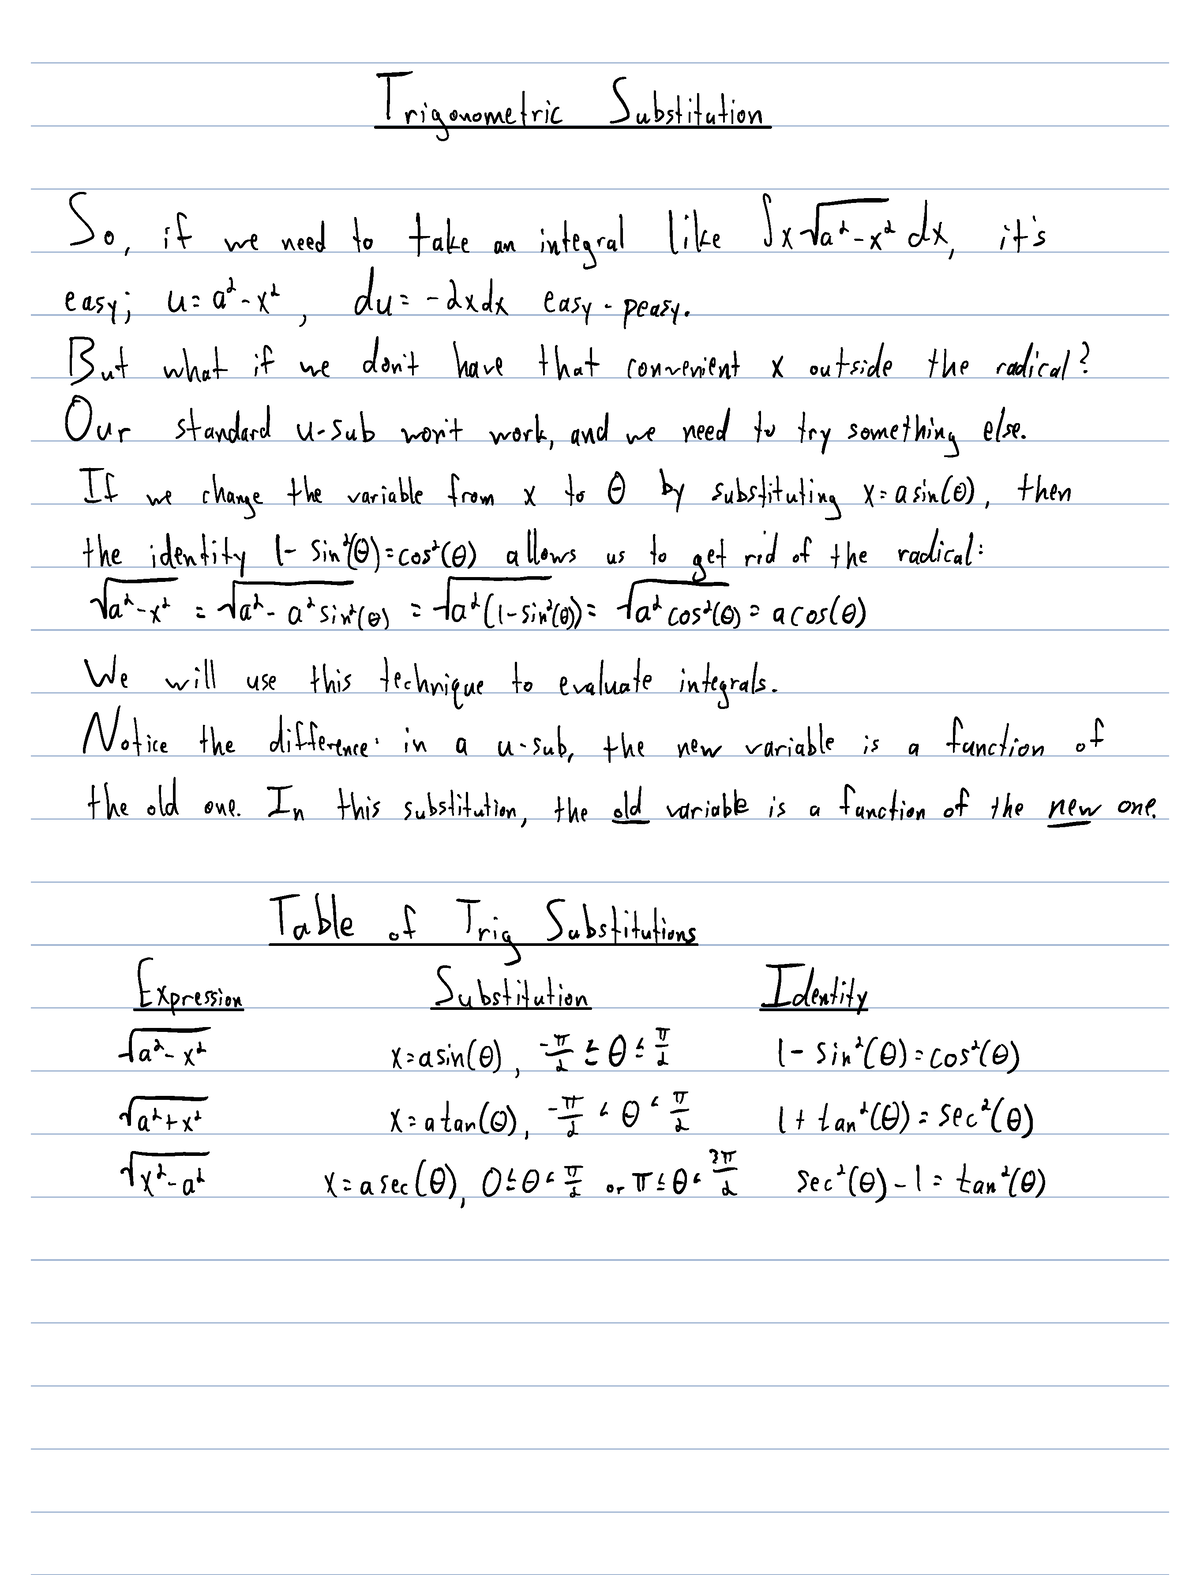 Trigonometric Substitution
So, if we need to take an integral like ∫x√(a²-x²) dx, it's
easy; u=a²-x², du=-2xdx easy-peasy.
But what if we don't have that convenient x outside the radical?
Our standard u-sub won't work, and we need to try something else.
If we change the variable from x to θ by substituting x=asin(θ), then
the identity 1-sin²(θ)=cos²(θ) allows us to get rid of the radical:
√(a²-x²) = √(a²-a²sin²(θ)) = √(a²(1-sin²(θ))) = √(a²cos²(θ)) = acos(θ)
We will use this technique to evaluate integrals.
Notice the difference: in a u-sub, the new variable is a function of
the old one. In this substitution, the old variable is a function of the new one.
Table of Trig Substitutions
Expression Substitution Identity
√(a²-x²) x=asin(θ), -π/2 ≤ θ ≤ π/2 1-sin²(θ)=cos²(θ)
√(a²+x²) x=atan(θ), -π/2 < θ < π/2 1+tan²(θ)=sec²(θ)
√(x²-a²) x=asec(θ), 0≤θ<π/2 or π≤θ<3π/2 sec²(θ)-1=tan²(θ)